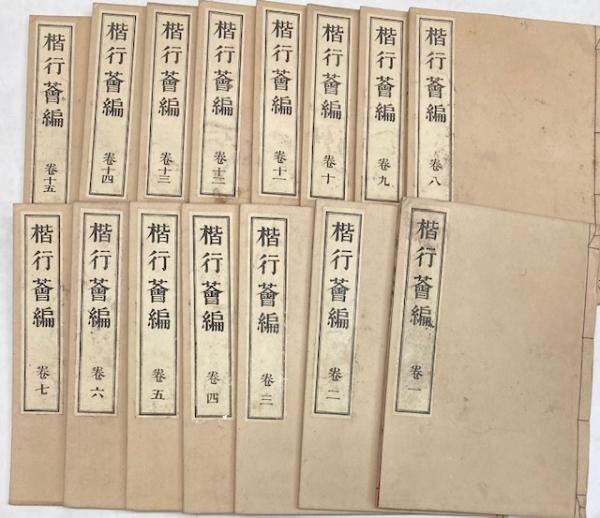 楷行薈編 卷八
楷行薈編 卷九
楷行薈編 卷十
楷行薈編 卷十一
楷行薈編 卷十二
楷行薈編 卷十三
楷行薈編 卷十四
楷行薈編 卷十五
楷行薈編 卷一
楷行薈編 卷二
楷行薈編 卷三
楷行薈編 卷四
楷行薈編 卷五
楷行薈編 卷六
楷行薈編 卷七